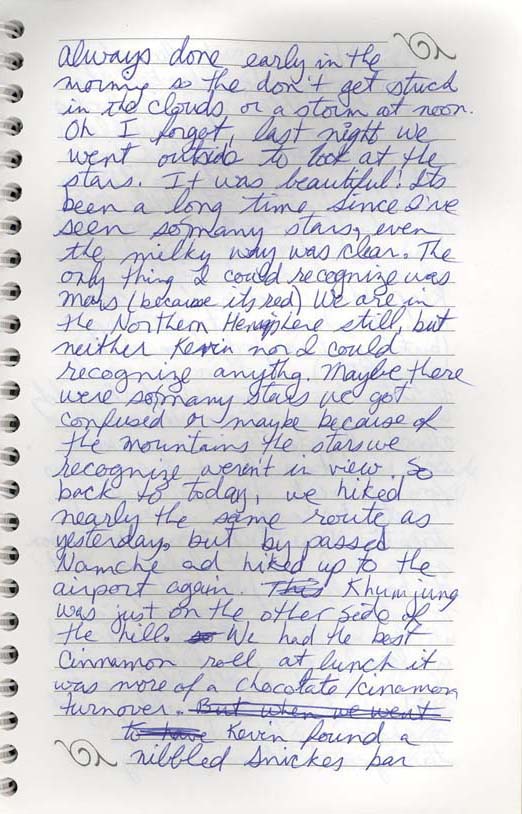 always done early in the
morning so the don't get stuck
in the clouds or a storm at noon.
Oh I forget, last night we
went outside to look at the
stars. It was beautiful! Its
been a long time since I've
seen so many stars, even
the milky way was clear. The
only thing I could recognize was
Mars (because its red) We are in
the Northern Hemisphere still, but
neither Kevin nor I could
recognize anythg. Maybe there
were so many stars we got
confused or maybe because of
the mountains the stars we
recognize weren't in view. So
back to today, we hiked
nearly the same route as
yesterday, but by passed
Namche ad hiked up to the
airport again. This Khumjung
was just on the other side of
the hill. so We had the best
Cinnamon roll at lunch it
was more of a chocotate/cinamon
turnover. But when we went
to have Kevin found a
nibbled Snickes bar